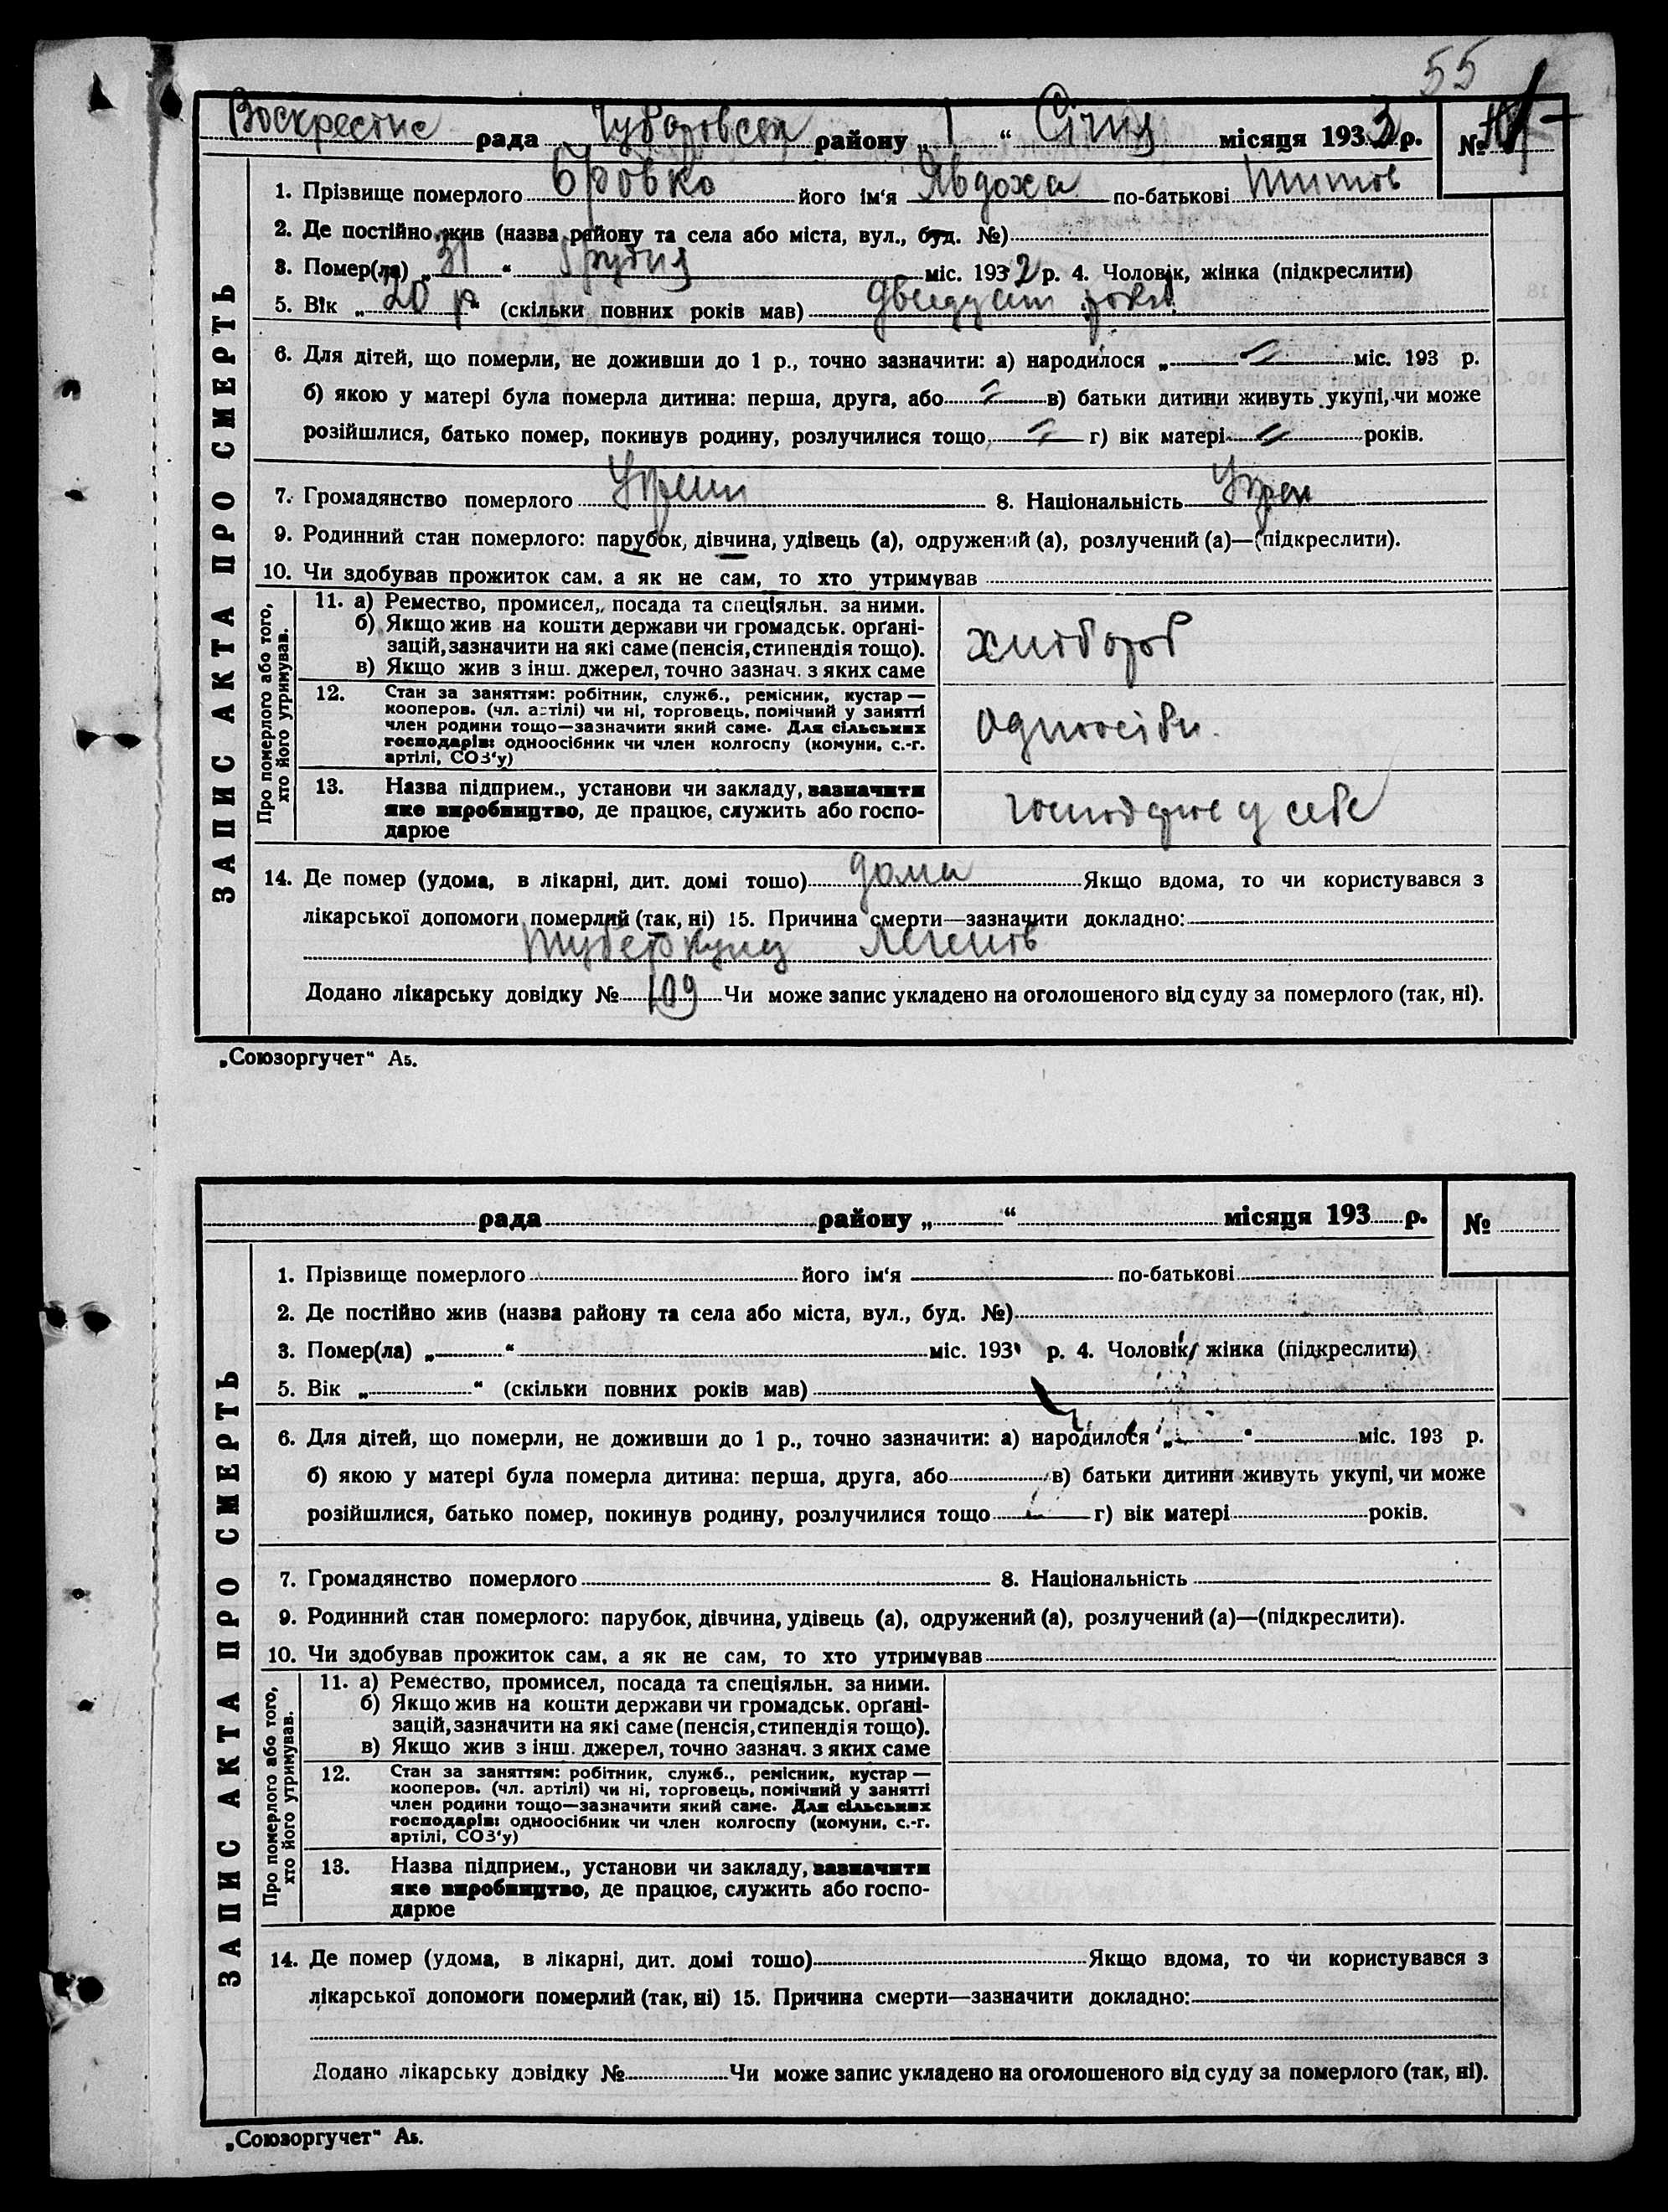 55
Воскресенс рада Чубаровськ району „ 1 “ Січня місяця 1933 р. №
1. Прізвище померлого Бровко його ім'я Явдоха по-батькові Титов
2. Де постійно жив (назва району та села або міста, вул., буд. №)
3. Помер(ла) „ 31 “ Грудня міс. 1932 р. 4. Чоловік, жінка (підкреслити)
5. Вік „ 20 р “ (скільки повних років мав) двадцят років
6. Для дітей, що померли, не доживши до 1 р., точно зазначити: а) народилося „ “ міс. 193 р.
б) якою у матері була померла дитина: перша, друга, або в) батьки дитини живуть укупі, чи може
розійшлися, батько помер, покинув родину, розлучилися тощо г) вік матері років.
7. Громадянство померлого Украин 8. Національність Укран
9. Родинний стан померлого: парубок, дівчина, удівець (а), одружений (а), розлучений (а)—(підкреслити).
10. Чи здобував прожиток сам, а як не сам, то хто утримував
ЗАПИС АКТА ПРО СМЕРТЬ
Про померлого або того,
хто його утримував.
11. а) Ремество, промисел, посада та спеціяльн. за ними.
б) Якщо жив на кошти держави чи громадськ. орґані-
зацій, зазначити на які саме (пенсія, стипендія тощо).
в) Якщо жив з інш. джерел, точно зазнач. з яких саме
хлібороб
12. Стан за заняттям: робітник, служб., ремісник, кустар —
кооперов. (чл. артілі) чи ні, торговець, помічний у занятті
член родини тощо—зазначити який саме. Для сільських
господарів: одноосібник чи член колгоспу (комуни, с.-г.
артілі, СОЗ'у)
одноосібн.
13. Назва підприєм., установи чи закладу, зазначити
яке виробництво, де працює, служить або госпо-
дарює
господарює у себе
14. Де помер (удома, в лікарні, дит. домі тошо) дома Якщо вдома, то чи користувався з
лікарської допомоги померлий (так, ні) 15. Причина смерти—зазначити докладно:
туберкульз легенів
Додано лікарську довідку № 109 Чи може запис укладено на оголошеного від суду за померлого (так, ні).
„Союзоргучет“ А5.
рада району „ “ місяця 193 р. №
1. Прізвище померлого його ім'я по-батькові
2. Де постійно жив (назва району та села або міста, вул., буд. №)
3. Помер(ла) „ “ міс. 193 р. 4. Чоловік, жінка (підкреслити)
5. Вік „ “ (скільки повних років мав)
6. Для дітей, що померли, не доживши до 1 р., точно зазначити: а) народилося „ “ міс. 193 р.
б) якою у матері була померла дитина: перша, друга, або в) батьки дитини живуть укупі, чи може
розійшлися, батько помер, покинув родину, розлучилися тощо г) вік матері років.
7. Громадянство померлого 8. Національність
9. Родинний стан померлого: парубок, дівчина, удівець (а), одружений (а), розлучений (а)—(підкреслити).
10. Чи здобував прожиток сам, а як не сам, то хто утримував
ЗАПИС АКТА ПРО СМЕРТЬ
Про померлого або того,
хто його утримував.
11. а) Ремество, промисел, посада та спеціяльн. за ними.
б) Якщо жив на кошти держави чи громадськ. орґані-
зацій, зазначити на які саме (пенсія, стипендія тощо).
в) Якщо жив з інш. джерел, точно зазнач. з яких саме
12. Стан за заняттям: робітник, служб., ремісник, кустар —
кооперов. (чл. артілі) чи ні, торговець, помічний у занятті
член родини тощо—зазначити який саме. Для сільських
господарів: одноосібник чи член колгоспу (комуни, с.-г.
артілі, СОЗ'у)
13. Назва підприєм., установи чи закладу, зазначити
яке виробництво, де працює, служить або госпо-
дарює
14. Де помер (удома, в лікарні, дит. домі тошо) Якщо вдома, то чи користувався з
лікарської допомоги померлий (так, ні) 15. Причина смерти—зазначити докладно:
Додано лікарську довідку № Чи може запис укладено на оголошеного від суду за померлого (так, ні).
„Союзоргучет“ А5.